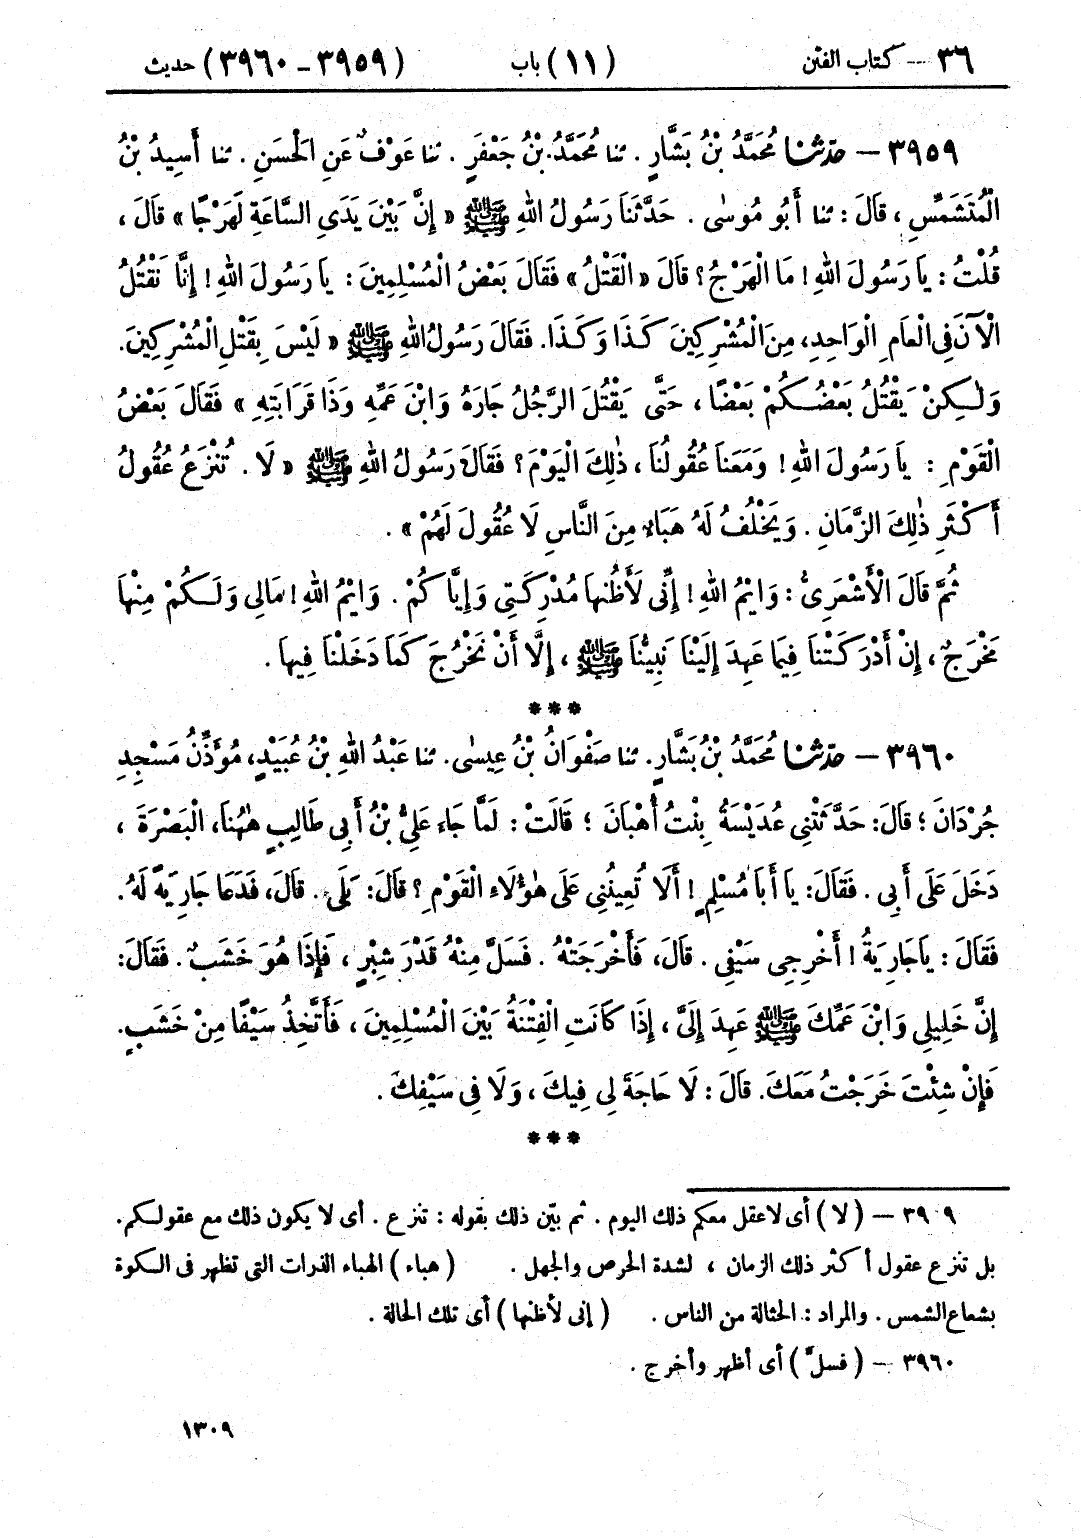 ٣٦ — كتاب الفتن (١١) باب (٣٩٥٩ – ٣٩٦٠) حديث
٣٩٥٩ — حدثنا مُحَمَّدُ بْنُ بَشَّارٍ . ثنا مُحَمَّدُ بْنُ جَعْفَرٍ . ثنا عَوْفٌ عَنِ الْحَسَنِ . ثنا أَسِيدُ بْنُ
الْمُتَشَمِّسِ ، قَالَ : ثنا أَبُو مُوسٰى . حَدَّثَنَا رَسُولُ اللهِ ﷺ « إِنَّ بَيْنَ يَدَىِ السَّاعَةِ لَهَرْجًا » قَالَ ،
قُلْتُ : يَا رَسُولَ اللهِ ! مَا الْهَرْجُ ؟ قَالَ « الْقَتْلُ » فَقَالَ بَعْضُ الْمُسْلِمِينَ : يَا رَسُولَ اللهِ ! إِنَّا نَقْتُلُ
الْآنَ فِى الْعَامِ الْوَاحِدِ، مِنَ الْمُشْرِكِينَ كَذَا وَكَذَا. فَقَالَ رَسُولُ اللهِ ﷺ « لَيْسَ بِقَتْلِ الْمُشْرِكِينَ.
وَلٰكِنْ يَقْتُلُ بَعْضُكُمْ بَعْضًا ، حَتَّى يَقْتُلَ الرَّجُلُ جَارَهُ وَابْنَ عَمِّهِ وَذَا قَرَابَتِهِ » فَقَالَ بَعْضُ
الْقَوْمِ : يَا رَسُولَ اللهِ ! وَمَعَنَا عُقُولُنَا ، ذٰلِكَ الْيَوْمَ ؟ فَقَالَ رَسُولُ اللهِ ﷺ « لَا . تُنْزَعُ عُقُولُ
أَكْثَرِ ذٰلِكَ الزَّمَانِ . وَيَخْلُفُ لَهُ هَبَاءٌ مِنَ النَّاسِ لَا عُقُولَ لَهُمْ » .
ثُمَّ قَالَ الْأَشْعَرِىُّ : وَايْمُ اللهِ ! إِنِّى لَأَظُنُّهَا مُدْرِكَتِى وَإِيَّاكُمْ . وَايْمُ اللهِ ! مَالِى وَلَكُمْ مِنْهَا
مَخْرَجٌ ، إِنْ أَدْرَكَتْنَا فِيمَا عَهِدَ إِلَيْنَا نَبِيُّنَا ﷺ ، إِلَّا أَنْ نَخْرُجَ كَمَا دَخَلْنَا فِيهَا .
***
٣٩٦٠ — حدثنا مُحَمَّدُ بْنُ بَشَّارٍ. ثنا صَفْوَانُ بْنُ عِيسٰى. ثنا عَبْدُ اللهِ بْنُ عُبَيْدٍ، مُؤَذِّنُ مَسْجِدِ
جُرْدَانَ ؛ قَالَ: حَدَّثَتْنِى عُدَيْسَةُ بِنْتُ أُهْبَانَ ؛ قَالَتْ : لَمَّا جَاءَ عَلِىُّ بْنُ أَبِى طَالِبٍ هٰهُنَا، الْبَصْرَةَ ،
دَخَلَ عَلَى أَبِى . فَقَالَ: يَا أَبَا مُسْلِمٍ ! أَلَا تُعِينُنِى عَلَى هٰؤُلَاءِ الْقَوْمِ ؟ قَالَ: بَلَى . قَالَ، فَدَعَا جَارِيَةً لَهُ.
فَقَالَ : يَاجَارِيَةُ ! أَخْرِجِى سَيْفِى . قَالَ، فَأَخْرَجَتْهُ . فَسَلَّ مِنْهُ قَدْرَ شِبْرٍ ، فَإِذَا هُوَ خَشَبٌ . فَقَالَ:
إِنَّ خَلِيلِى وَابْنَ عَمِّكَ ﷺ عَهِدَ إِلَىَّ ، إِذَا كَانَتِ الْفِتْنَةُ بَيْنَ الْمُسْلِمِينَ ، فَأَتَّخِذُ سَيْفًا مِنْ خَشَبٍ.
فَإِنْ شِئْتَ خَرَجْتُ مَعَكَ. قَالَ : لَا حَاجَةَ لِى فِيكَ ، وَلَا فِى سَيْفِكَ .
***
٣٩٥٩ — ( لا ) أى لاعقل معكم ذلك اليوم . ثم بيّن ذلك بقوله : تنزع . أى لا يكون ذلك مع عقولكم.
بل تنزع عقول أكثر ذلك الزمان ، لشدة الحرص والجهل . ( هباء ) الهباء الذرات التى تظهر فى الكوة
بشعاع الشمس . والمراد : الحثالة من الناس . ( إنى لأظنها ) أى تلك الحالة .
٣٩٦٠ — ( فسلّ ) أى أظهر وأخرج .
١٣٠٩